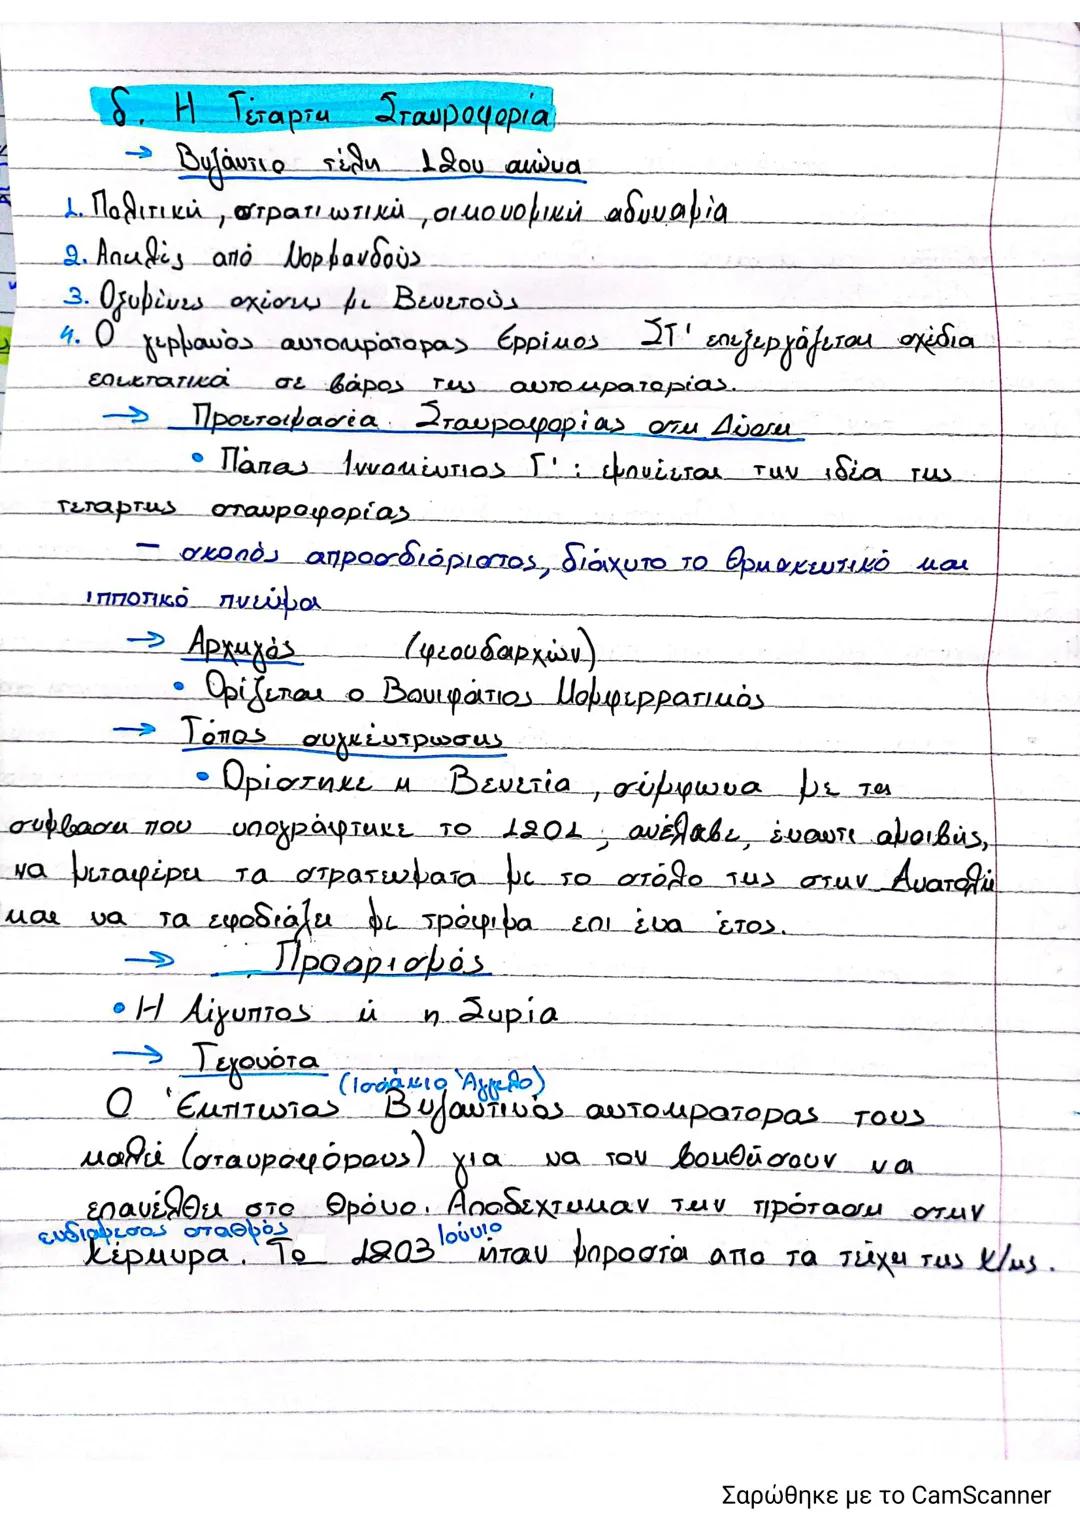 δ. Η Τέταρτη Σταυροφορία
→ Βυζάντιο τέλη 12ου αιώνα
1. Πολιτική, στρατιωτική, οικονομική αδυναμία
2. Απειλές από Νορμανδούς
3. Οξυμένες σχέσεις με Βενετούς
4. Ο γερμανός αυτοκράτορας Ερρίκος ΣΤ' επεξεργάζεται σχέδια
επεκτατικά σε βάρος της αυτοκρατορίας.
→ Προετοιμασία Σταυροφορίας στη Δύση
• Πάπας Ιννοκέντιος Γ' : εμπνέεται την ιδέα της
τέταρτης σταυροφορίας
– σκοπός απροσδιόριστος, διάχυτο το θρησκευτικό και
ιπποτικό πνεύμα
→ Αρχηγός (φεουδαρχών)
• Ορίζεται ο Βονιφάτιος Μομφερρατικός
→ Τόπος συγκέντρωσης
• Ορίστηκε η Βενετία, σύμφωνα με τη
σύμβαση που υπογράφτηκε το 1201, ανέλαβε, έναντι αμοιβής,
να μεταφέρει τα στρατεύματα με το στόλο της στην Ανατολή
και να τα εφοδιάζει με τρόφιμα επι ένα έτος.
→ Προορισμός
• Η Αίγυπτος ή η Συρία
→ Γεγονότα
(Ισαάκιο Άγγελο)
Ο Έκπτωτος Βυζαντινός αυτοκράτορας τους
καλεί (σταυροφόρους) για να τον βοηθήσουν να
επανέλθει στο θρόνο. Αποδέχτηκαν την πρόταση στην
ενδιάμεσος σταθμός Ιούνιο
Κέρκυρα. Το 1203 ήταν μπροστά απο τα τείχη της Κ/ης.
Σαρώθηκε με το CamScanner